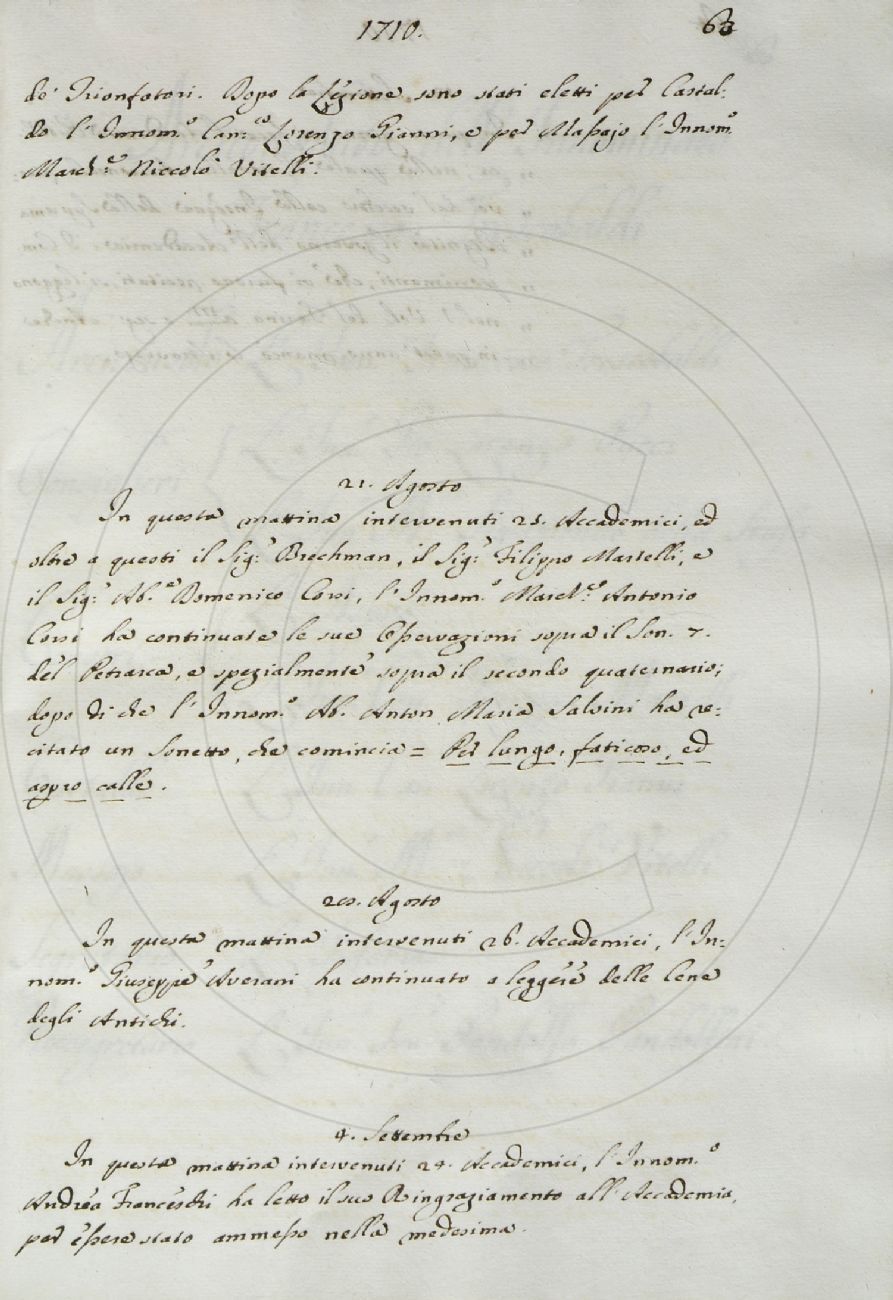 1710.
63
de' Trionfatori. Dopo la Lezione sono stati eletti per Castal:
do l'Innom.º Can.º Lorenzo Gianni, e per Massajo l'Innom.º
March.º Niccolò Vitelli.
21. Agosto
In questa mattina intervenuti 25. Accademici, ed
oltre a questi il Sig.r Brechman, il Sig.r Filippo Martelli, e
il Sig.r Ab.e Domenico Corsi, l'Innom.º March.e Antonio
Corsi ha continuate le sue Osservazioni sopra il Son. 7.
del Petrarca, e spezialmente sopra il secondo quaternario;
dopo di che l'Innom.º Ab. Anton Maria Salvini ha re:
citato un Sonetto, che comincia = Per lungo, faticoso, ed
aspro calle.
28. Agosto
In questa mattina intervenuti 26. Accademici, l'In:
nom.º Giuseppe Averani ha continuato a leggere delle Cene
degli Antichi.
4. Settembre
In questa mattina intervenuti 24. Accademici, l'Innom.º
Andrea Franceschi ha letto il suo Ringraziamento all'Accademia,
per essere stato ammesso nella medesima.